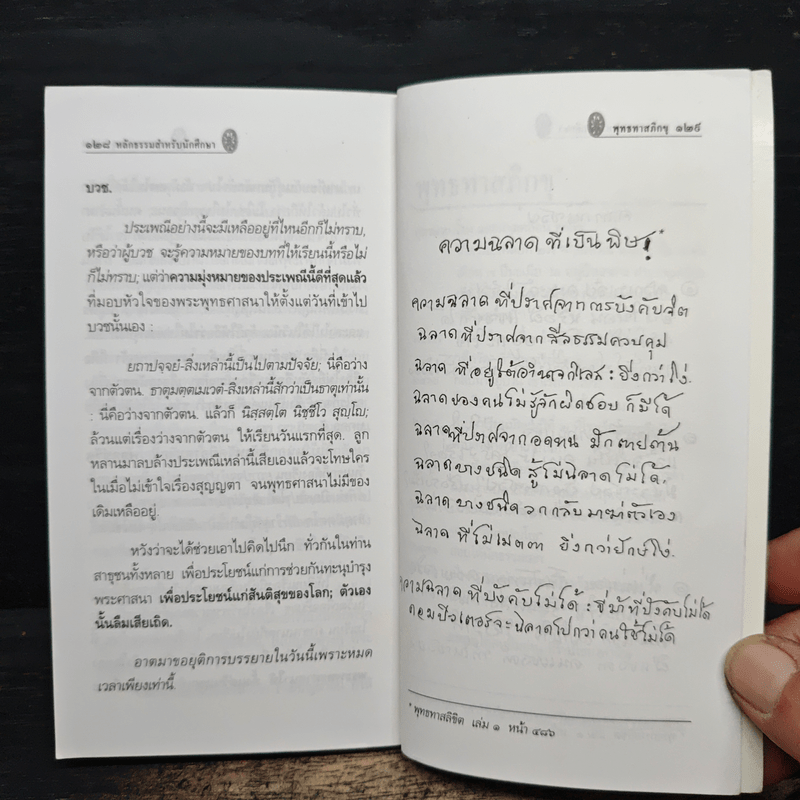 ๑๒๘ หลักธรรมสำหรับนักศึกษา
บวช.
ประเพณีอย่างนี้จะมีเหลืออยู่ที่ไหนอีกก็ไม่ทราบ,
หรือว่าผู้บวช จะรู้ความหมายของบทที่ให้เรียนนี้หรือไม่
ก็ไม่ทราบ; แต่ว่าความมุ่งหมายของประเพณีนี้ดีที่สุดแล้ว
ที่มอบหัวใจของพระพุทธศาสนาให้ตั้งแต่วันที่เข้าไป
บวชนั้นเอง :
ยถาปจฺจยํ-สิ่งเหล่านี้เป็นไปตามปัจจัย; นี่คือว่าง
จากตัวตน. ธาตุมตฺตเมเวตํ-สิ่งเหล่านี้สักว่าเป็นธาตุเท่านั้น
: นี่คือว่างจากตัวตน. แล้วก็ นิสฺสตฺโต นิชฺชีโว สุญฺโญ;
ล้วนแต่เรื่องว่างจากตัวตน ให้เรียนวันแรกที่สุด. ลูก
หลานมาลบล้างประเพณีเหล่านี้เสียเองแล้วจะโทษใคร
ในเมื่อไม่เข้าใจเรื่องสุญญตา จนพุทธศาสนาไม่มีของ
เดิมเหลืออยู่.
หวังว่าจะได้ช่วยเอาไปคิดไปนึก ทั่วกันในท่าน
สาธุชนทั้งหลาย เพื่อประโยชน์แก่การช่วยกันทะนุบำรุง
พระศาสนา เพื่อประโยชน์แก่สันติสุขของโลก; ตัวเอง
นั้นลืมเสียเถิด.
อาตมาขอยุติการบรรยายในวันนี้เพราะหมด
เวลาเพียงเท่านี้.
พุทธทาสภิกขุ ๑๒๙
ความฉลาด ที่เป็นพิษ!*
ความฉลาด ที่ปราศจากการบังคับจิต
ฉลาด ที่ปราศจากศีลธรรมควบคุม
ฉลาด ที่อยู่ใต้อำนาจกิเลส : ยิ่งกว่าโง่.
ฉลาดของคนไม่รู้จักผิดชอบ ก็มีได้
ฉลาดที่ปราศจากอดทน มักตายด้าน
ฉลาดบางชนิด สู้ไม่ฉลาดไม่ได้.
ฉลาดบางชนิด วกกลับมาฆ่าตัวเอง
ฉลาด ที่ไม่เมตตา ยิ่งกว่ายักษ์โง่.
ความฉลาด ที่บังคับไม่ได้ : ขี่ม้าที่บังคับไม่ได้
คอมปิวเตอร์จะฉลาดไปกว่าคนใช้ไม่ได้
* พุทธทาสลิขิต เล่ม ๑ หน้า ๔๘๖